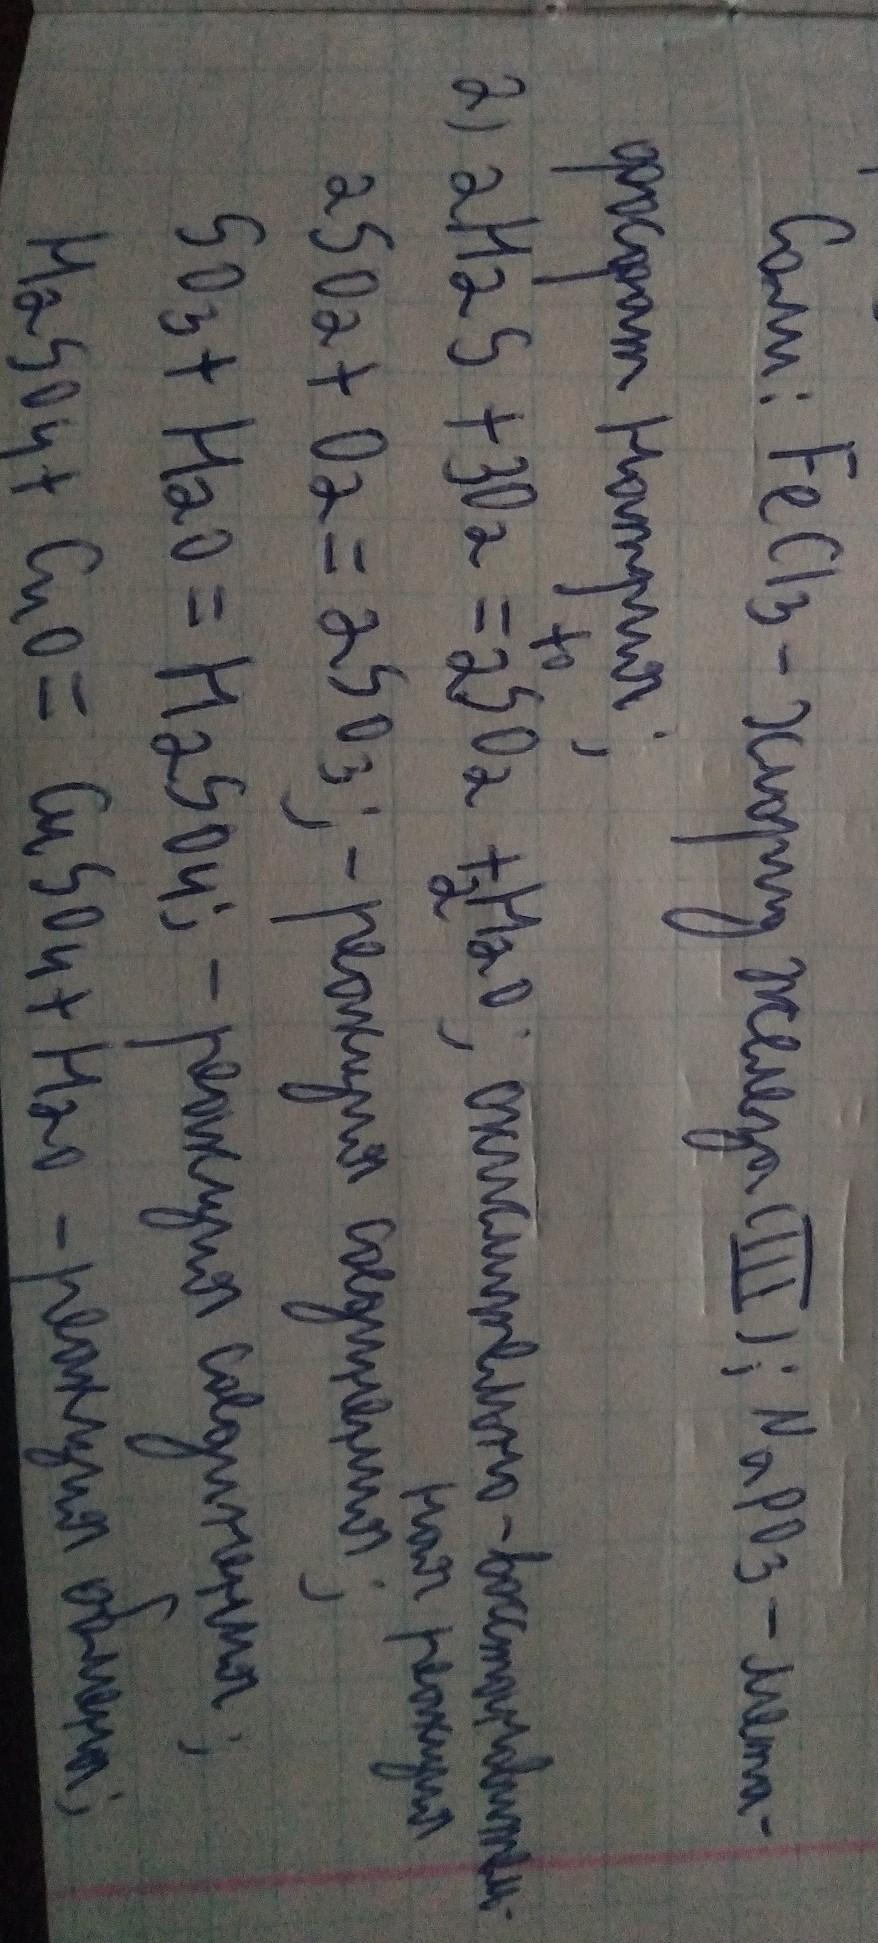 Соли: FeCl3 - хлорид железа (III); NaPO3 - мета-
фосфат натрия;
2) 2H2S + 3O2 = t° 2SO2 + 2H2O; окислительно-восстановитель-
ная реакция
2SO2 + O2 = 2SO3; - реакция соединения;
SO3 + H2O = H2SO4; - реакция соединения;
H2SO4 + CuO = CuSO4 + H2O - реакция обмена;